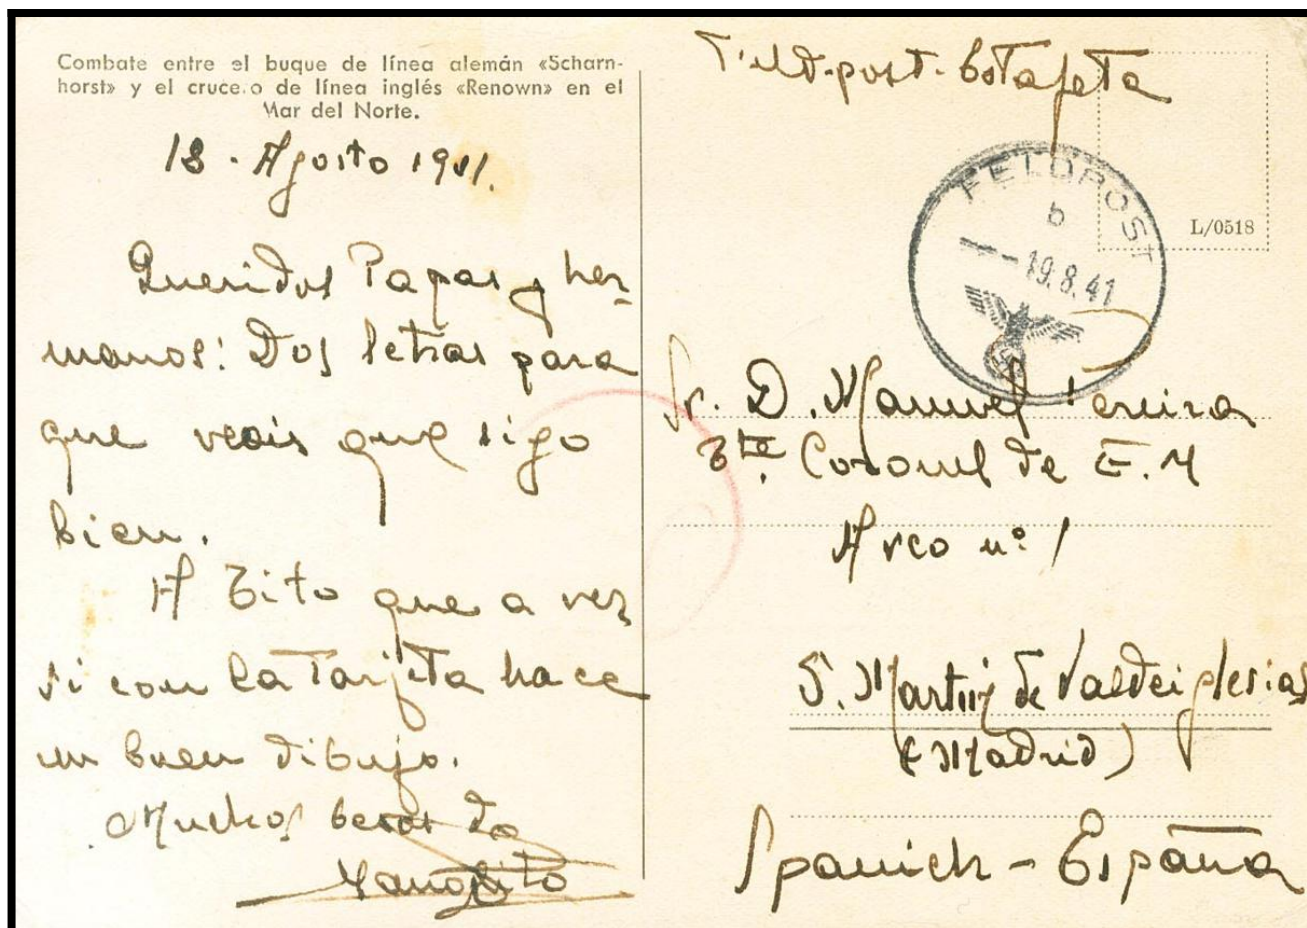 Combate entre el buque de línea alemán «Scharn-
horst» y el crucero de línea inglés «Renown» en el
Mar del Norte.
18 - Agosto 1941.
Queridos Papas y her-
manos: Dos letras para
que veais que sigo
bien.
A Tito que a ver
si con la tarjeta hace
un buen dibujo.
Muchos besos de
Manolito
Feld-post-Estafeta
FELDPOST
b
-19.8.41
L/0518
Sr. D. Manuel Pereira
Tte. Coronel de E.M
Arco nº 1
S. Martin de Valdeiglesias
(Madrid)
Spanich - España